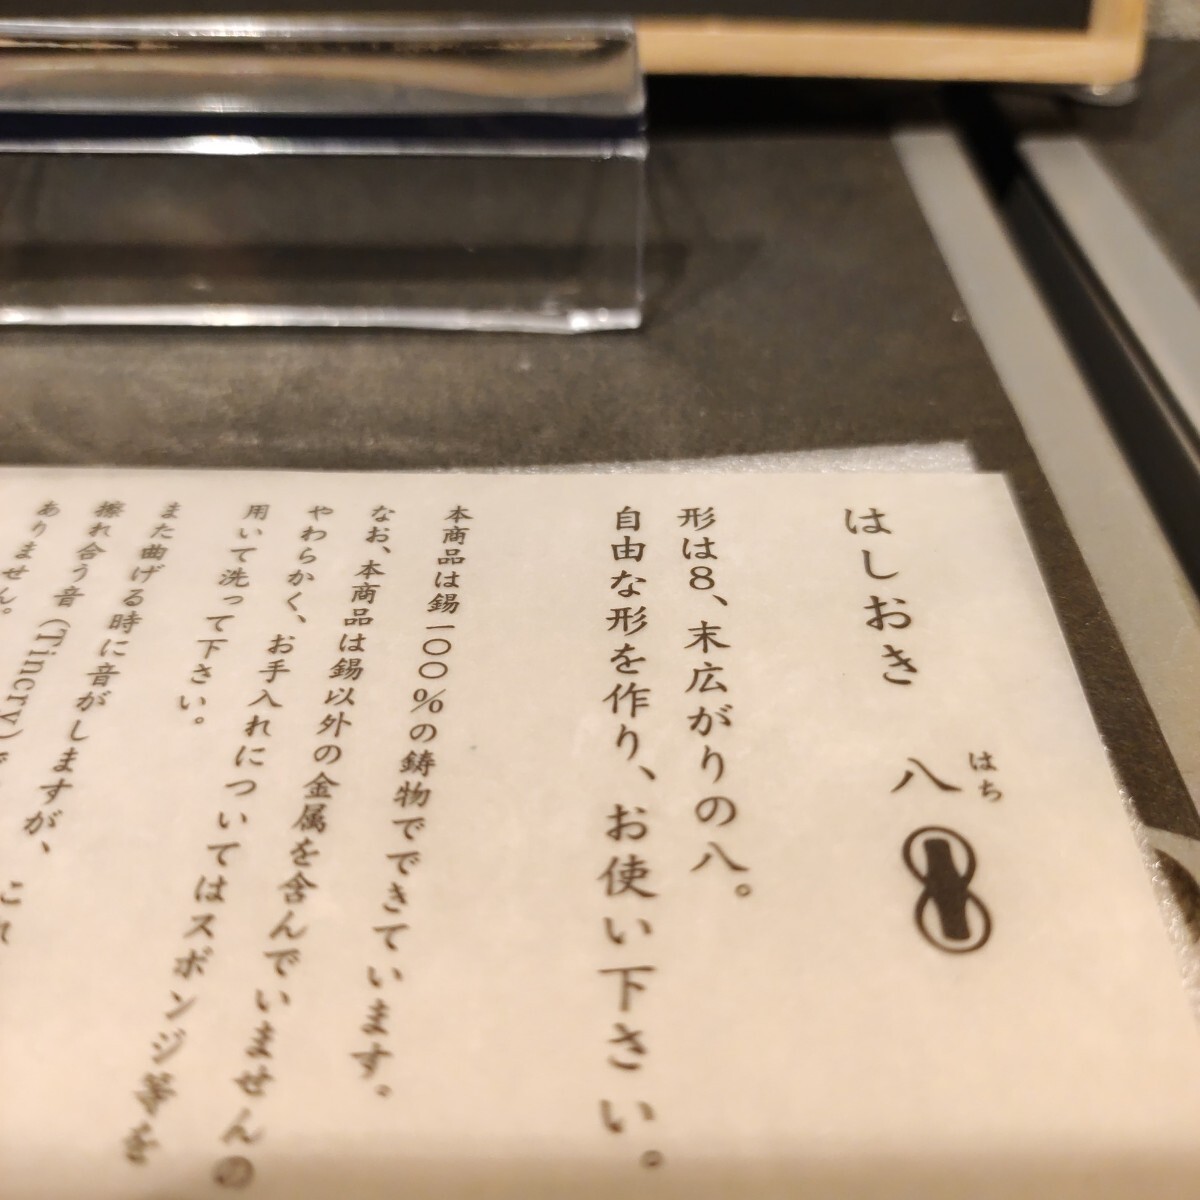 はしおき 八
はち
形は8、末広がりの八。
自由な形を作り、お使い下さい。
本商品は錫一〇〇%の鋳物でできています。
なお、本商品は錫以外の金属を含んでいませんの
やわらかく、お手入れについてはスポンジ等を
用いて洗って下さい。
また曲げる時に音がしますが、これ
擦れ合う音(Tincry)で
ありません。